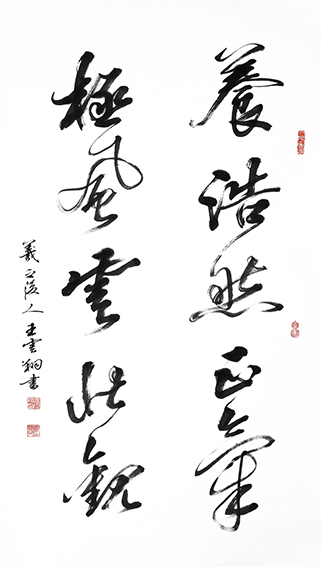 養浩然正氣
極風雲壯觀
羲之後人王雲翔書